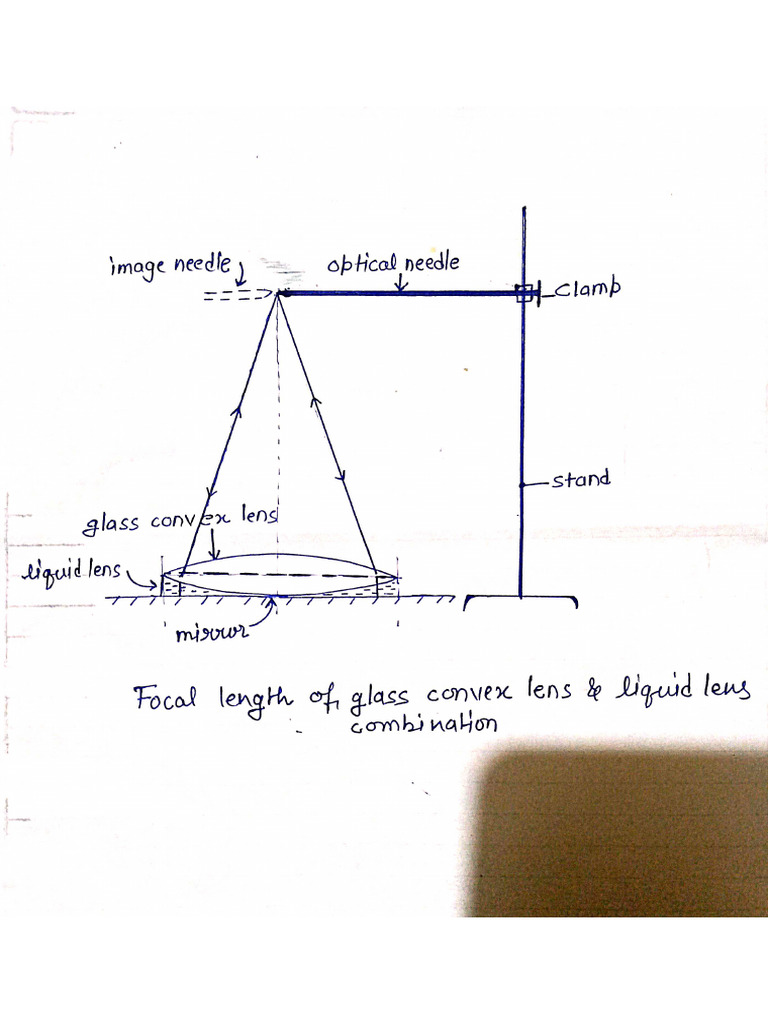 image needle
optical needle
clamp
stand
glass convex lens
liquid lens
mirror
Focal length of glass convex lens & liquid lens
combination